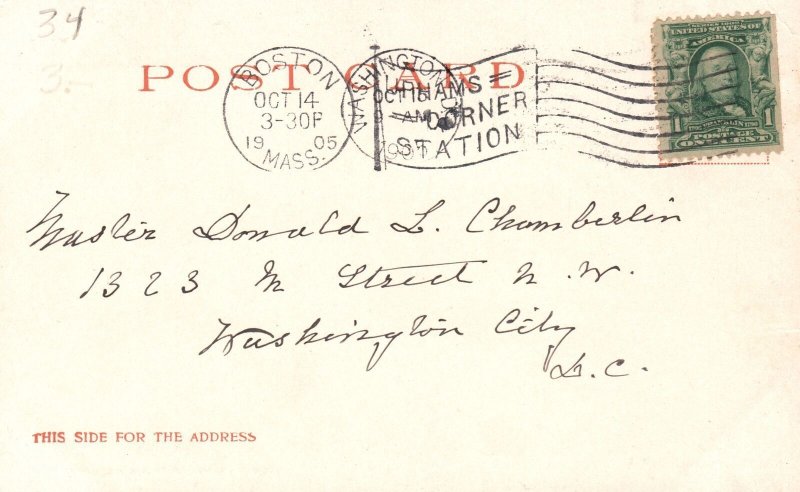 34
3.-
POST CARD
BOSTON
OCT 14
3-30P
1905
MASS.
WASHINGTON, D.
OCT 15
9 AM
1905
UPHAMS
CORNER
STATION
SERIES 1902
UNITED STATES OF
AMERICA
FRANKLIN
1 POSTAGE 1
ONE CENT
Master Donald L. Chamberlin
1323 M Street N.W.
Washington City
D.C.
THIS SIDE FOR THE ADDRESS